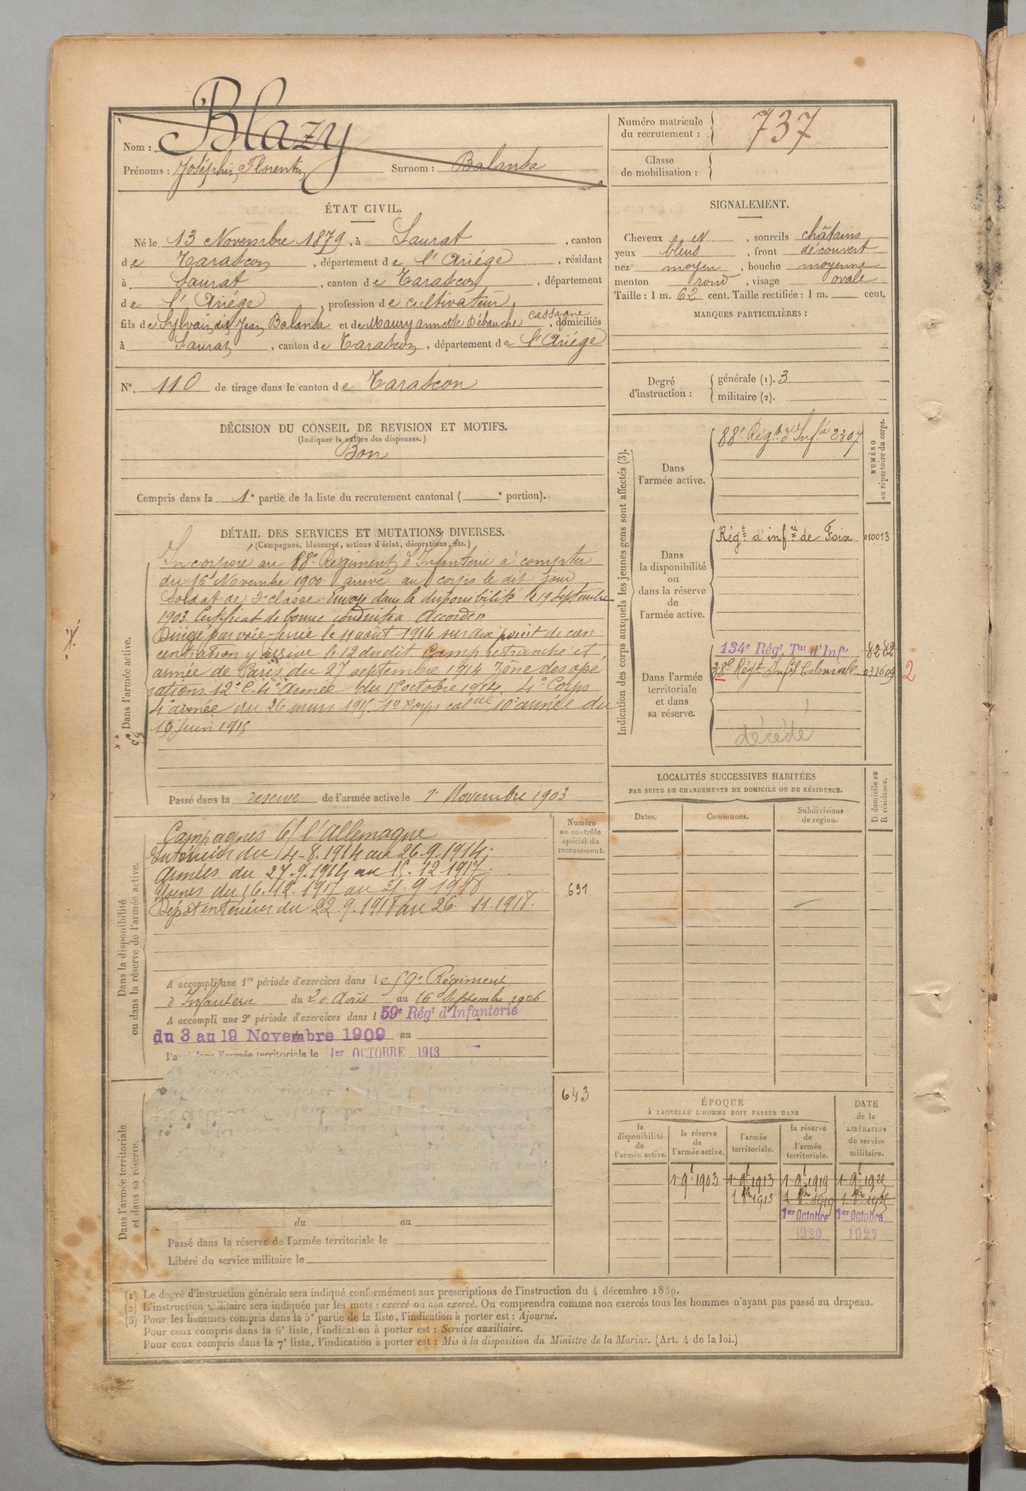 Nom : Blazy
Prénoms : Joséphin, Florentin Surnom : Balanda
Numéro matricule du recrutement : 737
Classe de mobilisation :
ÉTAT CIVIL.
Né le 13 Novembre 1879, à Saurat, canton
de Tarascon, département de l'Ariège, résidant
à Saurat, canton de Tarascon, département
de l'Ariège, profession de cultivateur,
fils de Sylvain dit Jean Balanda et de Maury Annette Débauche Cassagne, domiciliés
à Saurat, canton de Tarascon, département de l'Ariège
N° 110 de tirage dans le canton de Tarascon
SIGNALEMENT.
Cheveux N, sourcils châtains
yeux bleus, front découvert
nez moyen, bouche moyenne
menton rond, visage ovale
Taille : 1 m. 62 cent. Taille rectifiée : 1 m. cent.
MARQUES PARTICULIÈRES :
Degré d'instruction : générale (1). 3
militaire (2).
DÉCISION DU CONSEIL DE REVISION ET MOTIFS.
(Indiquer la nature des dispenses.)
Bon
Compris dans la 1e partie de la liste du recrutement cantonal ( e portion).
DÉTAIL DES SERVICES ET MUTATIONS DIVERSES.
(Campagnes, blessures, actions d'éclat, décorations, etc.)
Dans l'armée active.
Incorporé au 88e Régiment d'Infanterie à compter
du 16 Novembre 1900 arrivé au corps le dit jour
Soldat de 2e classe. Envoyé dans la disponibilité le 19 Septembre
1903. Certificat de bonne conduite Accordé
Dirigé par voie ferrée le 11 août 1914 sur dix point de con
centration y arrivé le 12 du dit Camp retranché et
armée de Paris du 27 septembre 1914 Zône des opé
rations 12e C. 4e Armée du 1er octobre 1914. 4e Corps
4e armée du 26 mars 1915. 1er Corps cal 10e armée du
16 juin 1915
Passé dans la réserve de l'armée active le 1er Novembre 1903
Dans la disponibilité ou dans la réserve de l'armée active.
Campagnes C/ l'Allemagne
Intérieur du 14-8.1914 au 26-9.1914.
Armées du 27.9.1914 au 15.12.1917.
du 16.12.1917 au 21.9.1918
Dépôt intérieur du 22.9.1918 au 26 11.1918.
A accompli une 1re période d'exercices dans le 59e Régiment
d'Infanterie du 20 Août au 16 Septembre 1906
A accompli une 2e période d'exercices dans l 59e Régt d'Infanterie
du 3 au 19 Novembre 1909 au
l'armée territoriale le 1er OCTOBRE 1913
Numéro au contrôle spécial du recrutement.
691
643
Dans l'armée territoriale et dans sa réserve.
du au
Passé dans la réserve de l'armée territoriale le
Libéré du service militaire le
Indication des corps auxquels les jeunes gens sont affectés (3).
NUMÉRO au répertoire du corps.
Dans l'armée active.
88e Régt d'Infie 2307
Dans la disponibilité ou dans la réserve de l'armée active.
Régt d'infie de Foix 010013
Dans l'armée territoriale et dans sa réserve.
134e Régt Tal d'Infie 8282
38e Régt Infie Coloniale 031609 2
décédé
LOCALITÉS SUCCESSIVES HABITÉES
PAR SUITE DE CHANGEMENTS DE DOMICILE OU DE RÉSIDENCE.
Dates. Communes. Subdivisions de région. D domicile ou R résidence.
ÉPOQUE
À LAQUELLE L'HOMME DOIT PASSER DANS
DATE de la LIBÉRATION du service militaire.
la disponibilité de l'armée active.
la réserve de l'armée active.
l'armée territoriale.
la réserve de l'armée territoriale.
1 9bre 1903 1 9bre 1913 1 9bre 1919
1 8bre 1913
1er Octobre 1er Octobre
1920 1927
(1) Le degré d'instruction générale sera indiqué conformément aux prescriptions de l'instruction du 4 décembre 1889.
(2) L'instruction militaire sera indiquée par les mots : exercé ou non exercé. On comprendra comme non exercés tous les hommes n'ayant pas passé au drapeau.
(3) Pour les hommes compris dans la 5e partie de la liste, l'indication à porter est : Ajourné.
Pour ceux compris dans la 6e liste, l'indication à porter est : Service auxiliaire.
Pour ceux compris dans la 7e liste, l'indication à porter est : Mis à la disposition du Ministre de la Marine. (Art. 4 de la loi.)